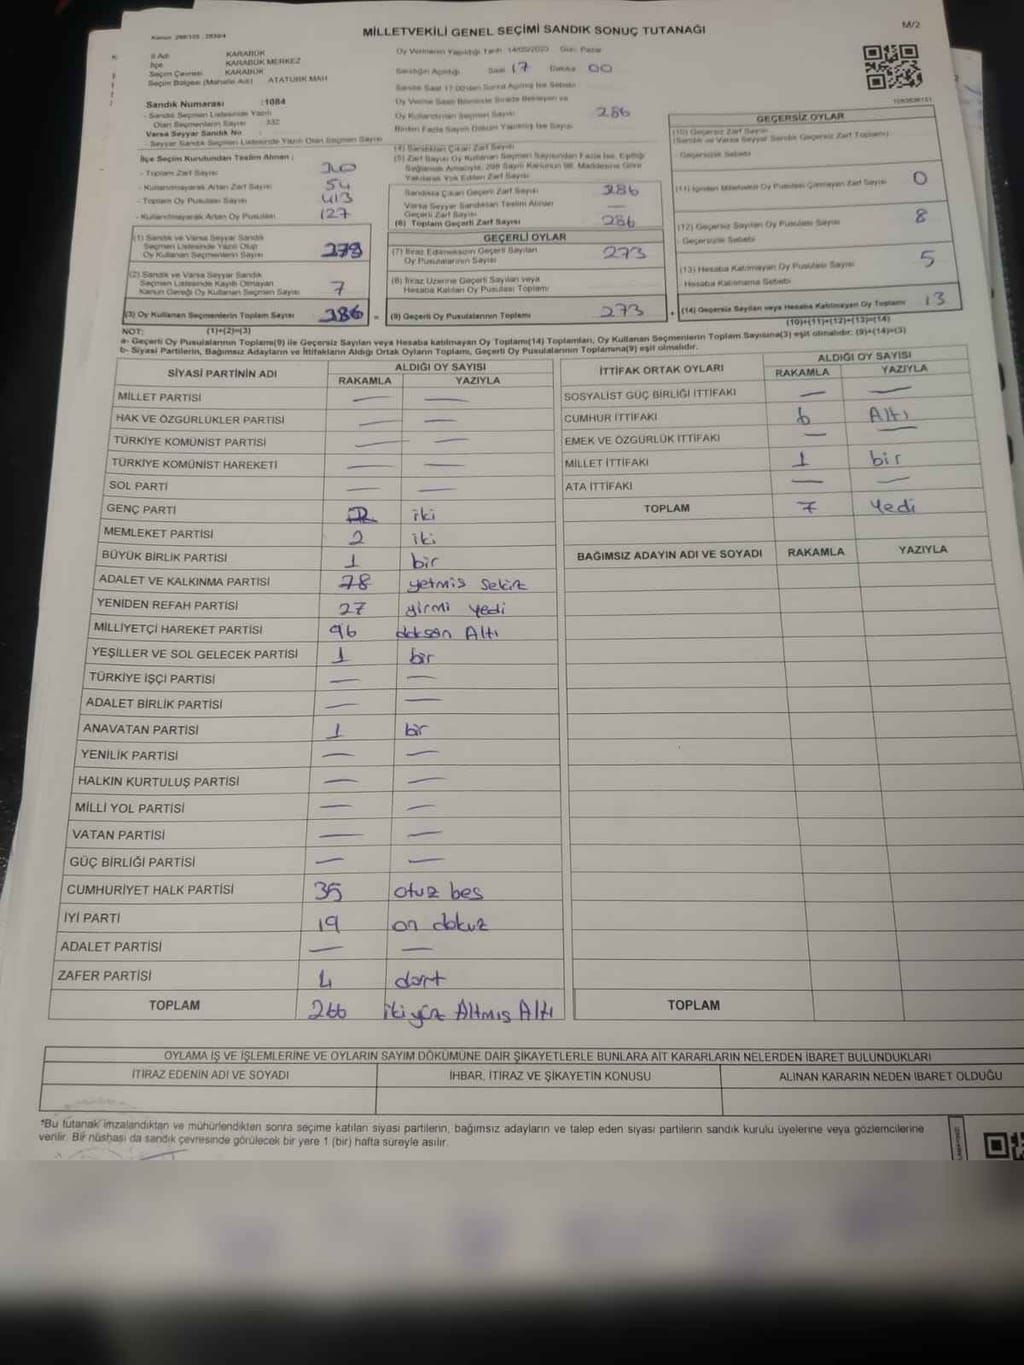 MİLLETVEKİLİ GENEL SEÇİMİ SANDIK SONUÇ TUTANAĞI
M/2
İl Adı KARABÜK
İlçe KARABÜK MERKEZ
Seçim Çevresi KARABÜK
Seçim Bölgesi (Mahalle Adı) ATATÜRK MAH
Oy Vermenin Yapıldığı Tarih 14/05/2023 Gün Pazar
Sandığın Açıldığı Saat 17 Dakika 00
Sandık Numarası :1084
- Sandık Seçmen Listesinde Yazılı
Olan Seçmenlerin Sayısı : 332
Varsa Seyyar Sandık No
- Seyyar Sandık Seçmen Listesinde Yazılı Olan Seçmen Sayısı
286
İlçe Seçim Kurulundan Teslim Alınan :
- Toplam Zarf Sayısı
- Kullanılmayarak Artan Zarf Sayısı 54
- Toplam Oy Pusulası Sayısı 413
- Kullanılmayarak Artan Oy Pusulası 127
(4) Sandıktan Çıkan Zarf Sayısı
Sandıkta Çıkan Geçerli Zarf Sayısı 286
Varsa Seyyar Sandıktan Teslim Alınan
Geçerli Zarf Sayısı —
(6) Toplam Geçerli Zarf Sayısı 286
(1) Sandık ve Varsa Seyyar Sandık
Seçmen Listesinde Yazılı Olup
Oy Kullanan Seçmenlerin Sayısı 279
(2) Sandık ve Varsa Seyyar Sandık
Seçmen Listesinde Kayıtlı Olmayan
Kanun Gereği Oy Kullanan Seçmen Sayısı 7
(3) Oy Kullanan Seçmenlerin Toplam Sayısı 286
GEÇERLİ OYLAR
(7) İtiraz Edilmeksizin Geçerli Sayılan
Oy Pusulalarının Sayısı 273
(8) İtiraz Üzerine Geçerli Sayılan veya
Hesaba Katılan Oy Pusulası Toplamı
(9) Geçerli Oy Pusulalarının Toplamı 273
GEÇERSİZ OYLAR
(10) Geçersiz Zarf Sayısı
(Sandık ve Varsa Seyyar Sandık Geçersiz Zarf Toplamı)
- Geçersizlik Sebebi
(11) İçinden Milletvekili Oy Pusulası Çıkmayan Zarf Sayısı 0
(12) Geçersiz Sayılan Oy Pusulası Sayısı 8
- Geçersizlik Sebebi
(13) Hesaba Katılmayan Oy Pusulası Sayısı 5
- Hesaba Katılmama Sebebi
(14) Geçersiz Sayılan veya Hesaba Katılmayan Oy Toplamı 13
NOT: (1)+(2)=(3)
(10)+(11)+(12)+(13)=(14)
a- Geçerli Oy Pusulalarının Toplamı(9) ile Geçersiz Sayılan veya Hesaba katılmayan Oy Toplamı(14) Toplamları, Oy Kullanan Seçmenlerin Toplam Sayısına(3) eşit olmalıdır: (9)+(14)=(3)
b- Siyasi Partilerin, Bağımsız Adayların ve İttifakların Aldığı Ortak Oyların Toplamı, Geçerli Oy Pusulalarının Toplamına(9) eşit olmalıdır.
SİYASİ PARTİNİN ADI ALDIĞI OY SAYISI
RAKAMLA YAZIYLA
MİLLET PARTİSİ — —
HAK VE ÖZGÜRLÜKLER PARTİSİ — —
TÜRKİYE KOMÜNİST PARTİSİ — —
TÜRKİYE KOMÜNİST HAREKETİ — —
SOL PARTİ — —
GENÇ PARTİ 2 iki
MEMLEKET PARTİSİ 2 iki
BÜYÜK BİRLİK PARTİSİ 1 bir
ADALET VE KALKINMA PARTİSİ 78 yetmiş sekiz
YENİDEN REFAH PARTİSİ 27 yirmi yedi
MİLLİYETÇİ HAREKET PARTİSİ 96 doksan Altı
YEŞİLLER VE SOL GELECEK PARTİSİ 1 bir
TÜRKİYE İŞÇİ PARTİSİ — —
ADALET BİRLİK PARTİSİ — —
ANAVATAN PARTİSİ 1 bir
YENİLİK PARTİSİ — —
HALKIN KURTULUŞ PARTİSİ — —
MİLLİ YOL PARTİSİ — —
VATAN PARTİSİ — —
GÜÇ BİRLİĞİ PARTİSİ — —
CUMHURİYET HALK PARTİSİ 35 otuz beş
İYİ PARTİ 19 on dokuz
ADALET PARTİSİ — —
ZAFER PARTİSİ 4 dört
TOPLAM 266 iki yüz Altmış Altı
İTTİFAK ORTAK OYLARI ALDIĞI OY SAYISI
RAKAMLA YAZIYLA
SOSYALİST GÜÇ BİRLİĞİ İTTİFAKI — —
CUMHUR İTTİFAKI 6 Altı
EMEK VE ÖZGÜRLÜK İTTİFAKI — —
MİLLET İTTİFAKI 1 bir
ATA İTTİFAKI — —
TOPLAM 7 Yedi
BAĞIMSIZ ADAYIN ADI VE SOYADI RAKAMLA YAZIYLA
TOPLAM
OYLAMA İŞ VE İŞLEMLERİNE VE OYLARIN SAYIM DÖKÜMÜNE DAİR ŞİKAYETLERLE BUNLARA AİT KARARLARIN NELERDEN İBARET BULUNDUKLARI
İTİRAZ EDENİN ADI VE SOYADI İHBAR, İTİRAZ VE ŞİKAYETİN KONUSU ALINAN KARARIN NEDEN İBARET OLDUĞU
*Bu tutanak imzalandıktan ve mühürlendikten sonra seçime katılan siyasi partilerin, bağımsız adayların ve talep eden siyasi partilerin sandık kurulu üyelerine veya gözlemcilerine
verilir. Bir nüshası da sandık çevresinde görülecek bir yere 1 (bir) hafta süreyle asılır.